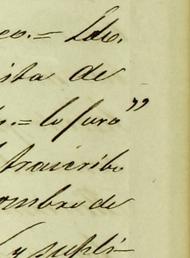 co.= Ldo.
ista de
s.= lo juro"
transcribo
ombre de
y supli-